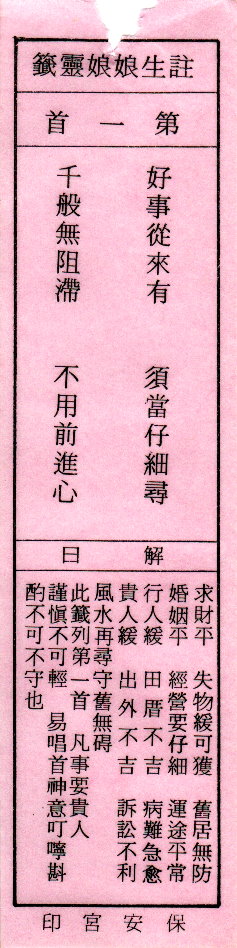 註生娘娘靈籤
第一首
好事從來有 須當仔細尋
千般無阻滯 不用前進心
解曰
求財平 失物緩可獲 舊居無防
婚姻平 經營要仔細 運途平常
行人緩 田厝不吉 病難急愈
貴人緩 出外不吉 訴訟不利
風水再尋守舊無碍
此籤列第一首 凡事要貴人
謹慎不可輕 易唱首神意叮嚀斟
酌不可不守也
保安宮印